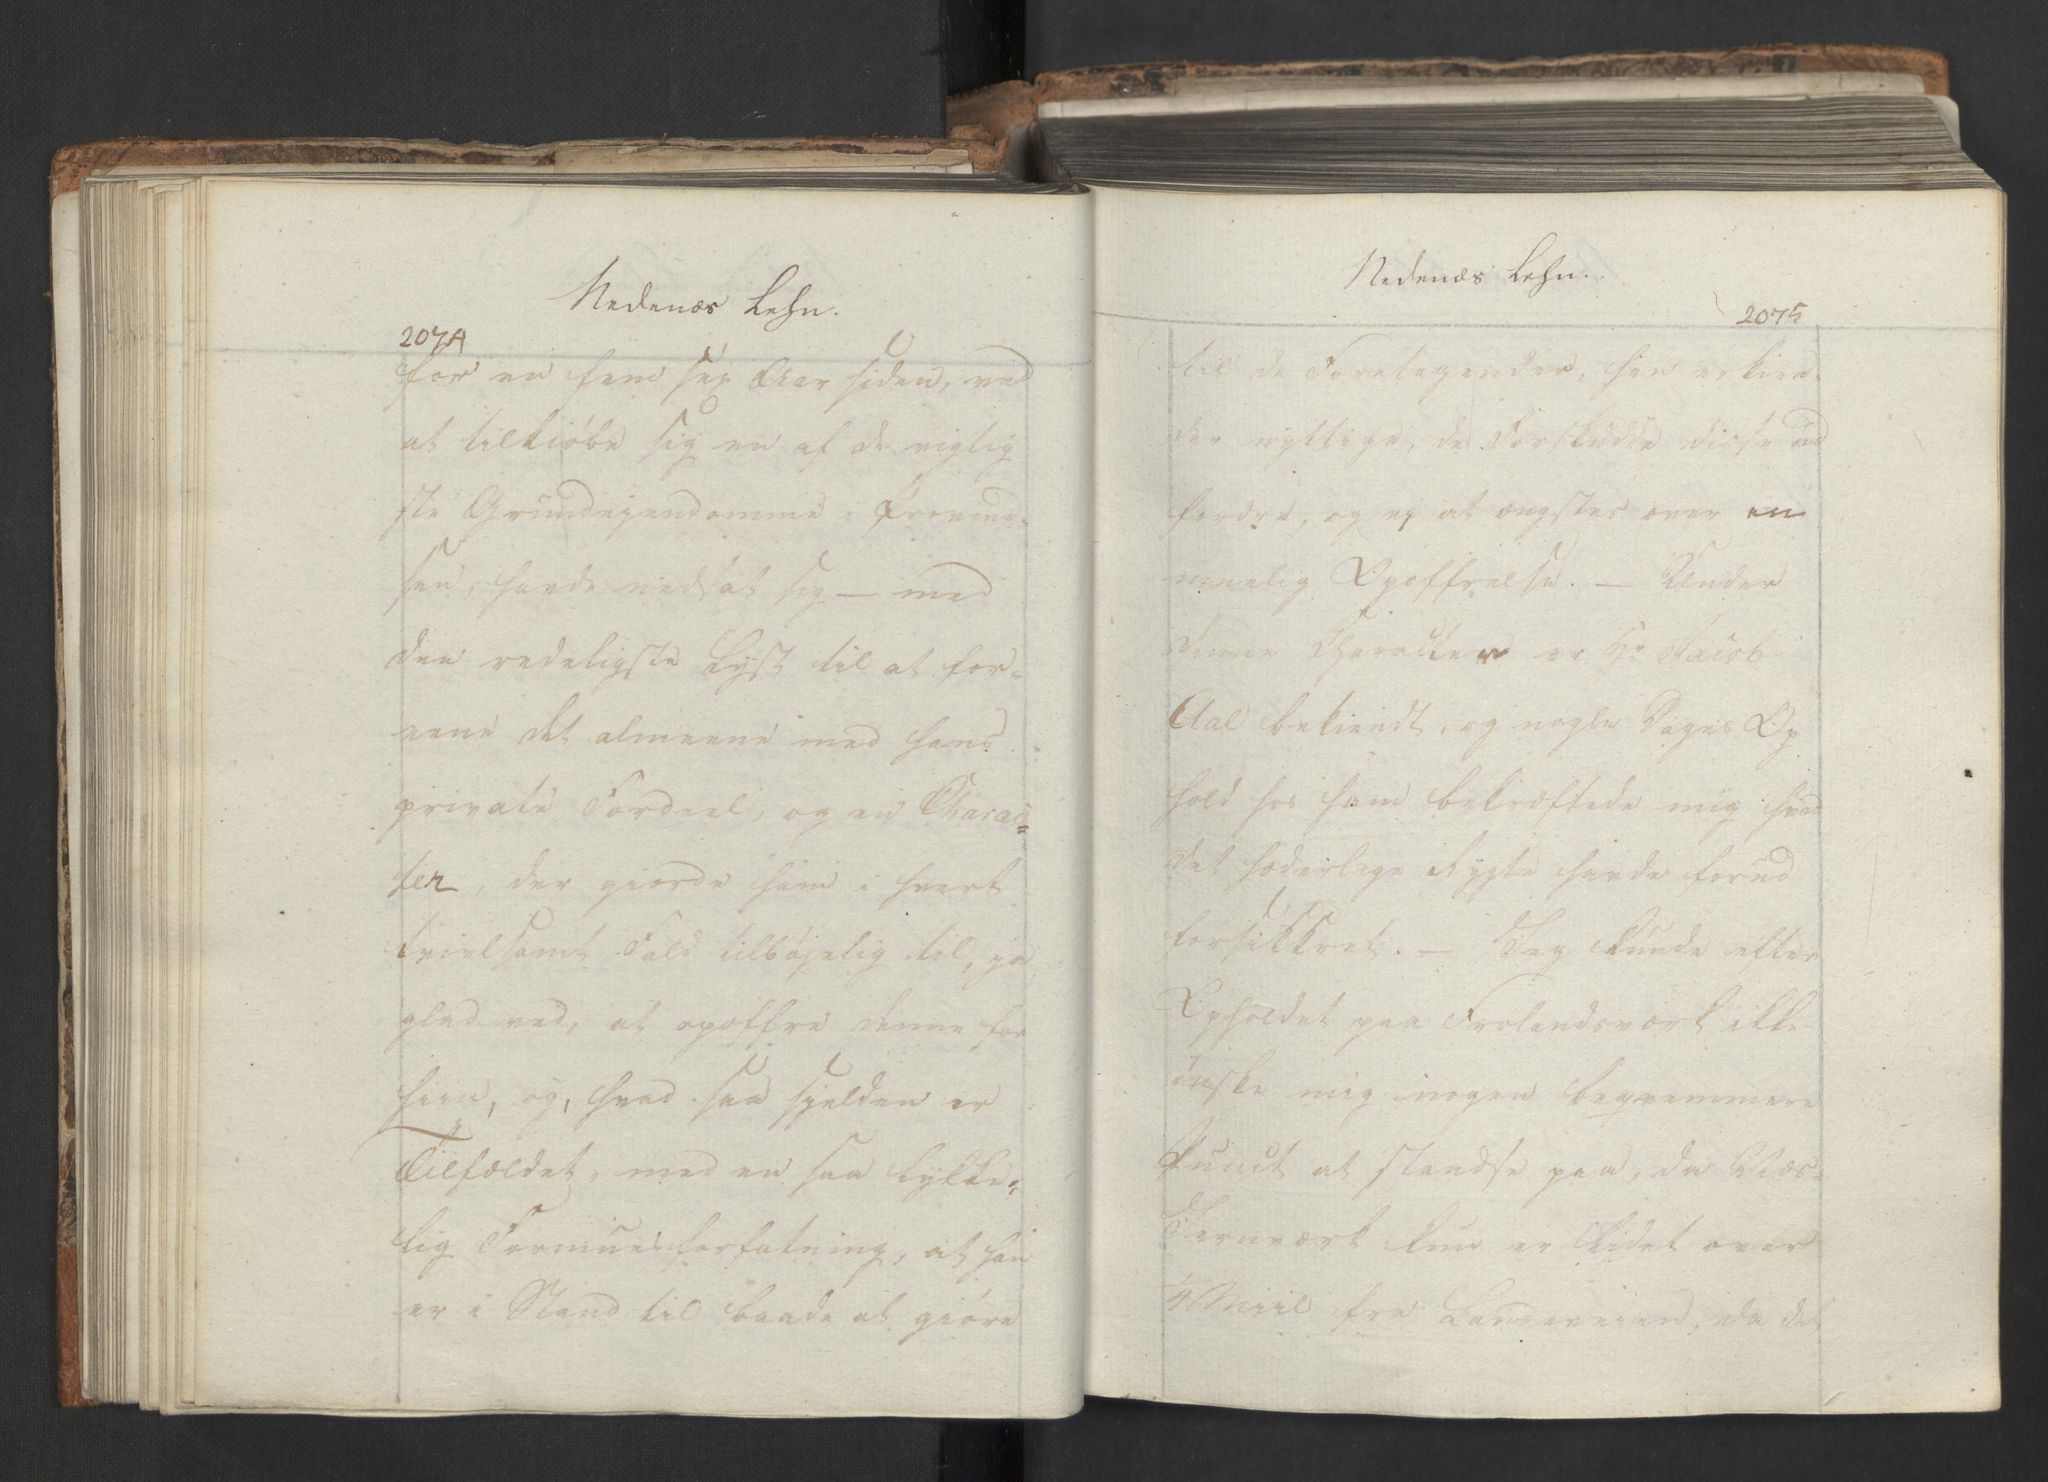 Nedenæs Lehn.
2074
for en fem sex Aar siden, ved
at tilkiöbe sig en af de vigtig
ste Grundeyendomme i Provind-
sen, havde nedsat sig — med
den redeligste Lyst til at for-
eene det almeene med hans
private Fordeel, og en Charac-
ter, der giorde ham i hvert
tvivlsomt Fald tilböjelig til, ja
glad ved, at opoffre denne for
hiin, og, hvad saa sjelden er
Tilfældet, med en saa lykke-
lig Formuesforfatning, at han
er i Stand til baade at giöre
Nedenæs Lehn.
2075
til de Foretagender, han erkien-
der nyttige, de Forskudde disse ud
fordre, og ey at ængstes over en
muelig Opoffrelse. — Under
denne Character er Hr Jacob
Aal bekiendt, og nogle Dages Op
hold hos ham bekræftede mig hvad
det hæderlige Rygte havde forud
forsikkret. — Jeg kunde efter
Opholdet paa Frolandsværk ikke
önske mig i nogen beqvemmere
Punct at standse paa, da Næs-
Jernværk kun er lidet over
¼ Miil fra Landeveien, da det